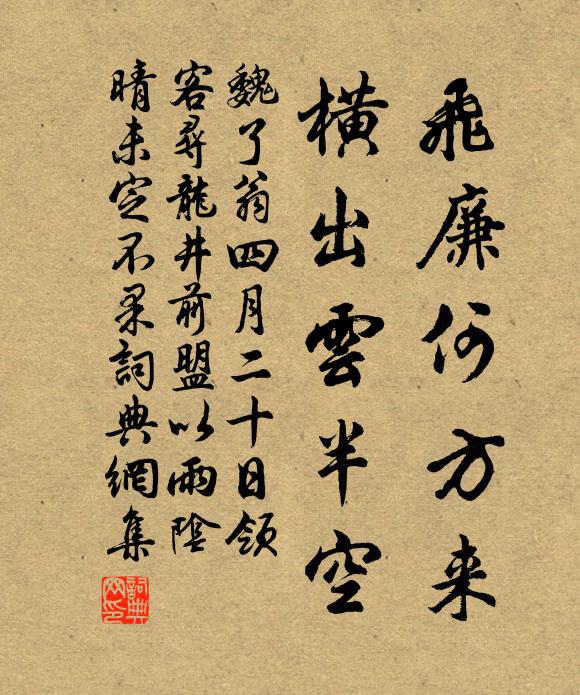 飛廉何方来
橫出雲半空
魏了翁四月二十日領
客尋龍井前盟以雨陰
晴未定不果詞典網集
詞典网印